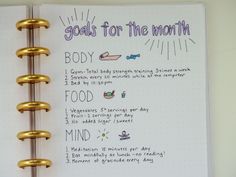 goals for the month
BODY
1 Gym-Total body strength training 3 times a week
2 Stretch every 20 minutes while at the computer
3 Bed by 10:30pm
FOOD
1 Vegetables 5+ servings per day
2 Fruit-2 servings per day
3 No added sugar/sweets!
MIND
1 Meditation 15 minutes per day
2 Eat mindfully at lunch-no reading!
3 Moment of gratitude every day